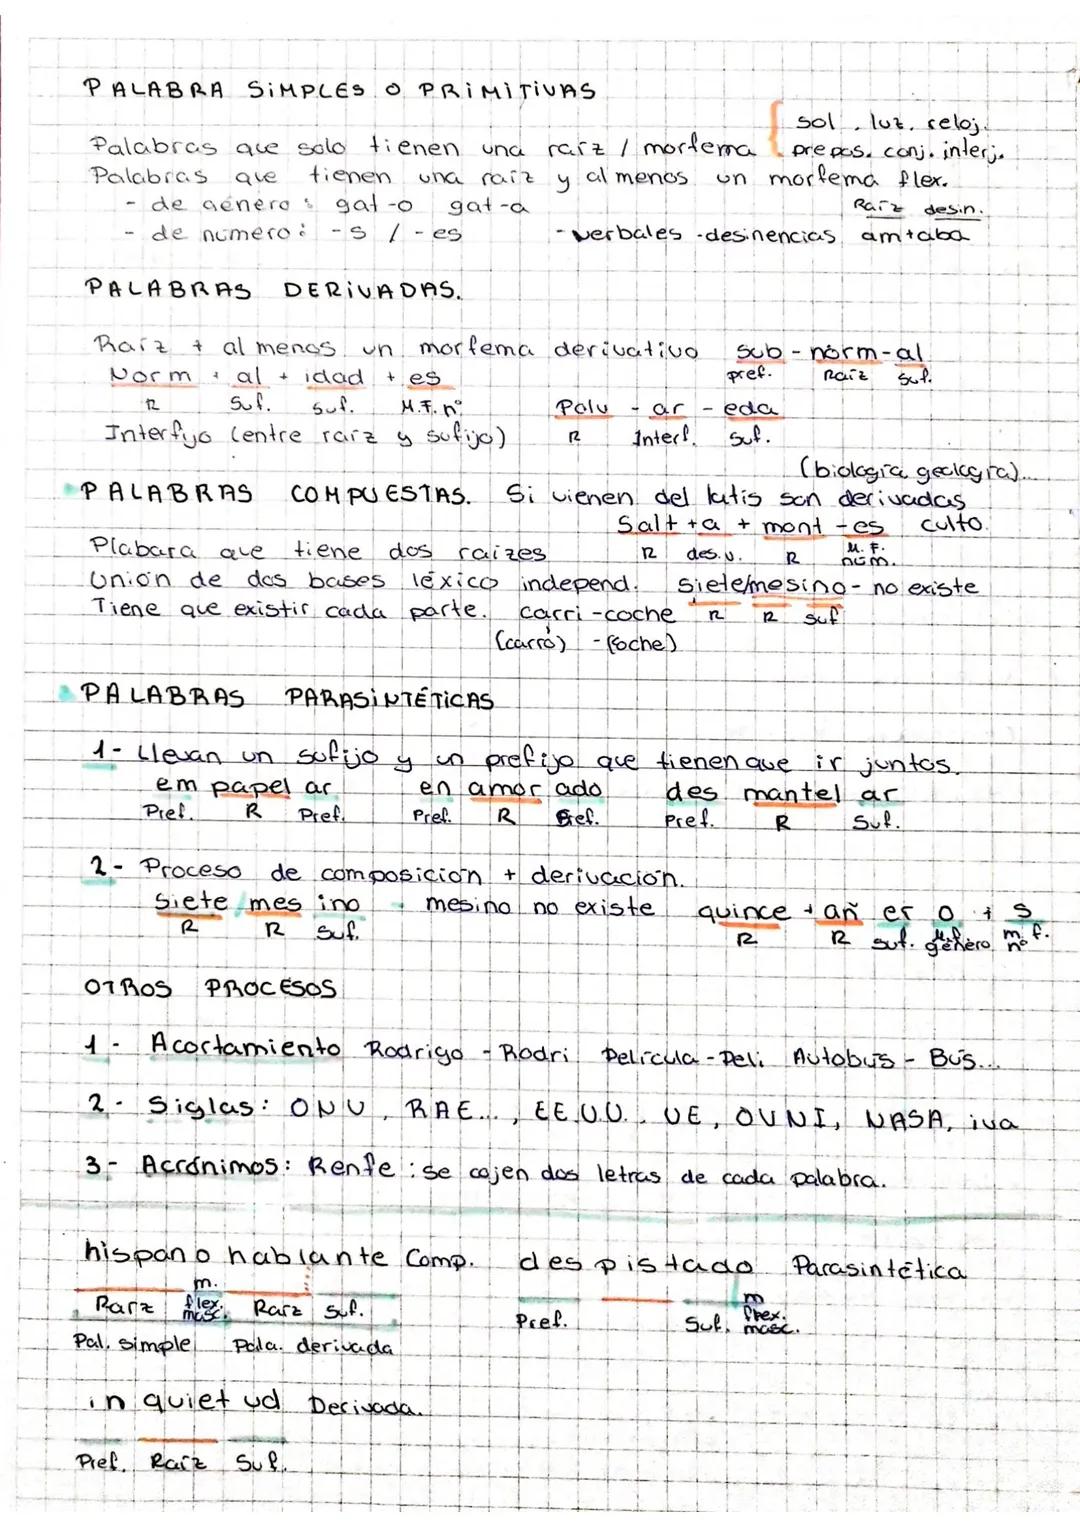 PALABRA SIMPLES O PRIMITIVAS
sol, luz, reloj.
Palabras que solo tienen una raíz / morfema prepos. conj. interj.
Palabras que tienen una raíz y al menos un morfema flex.
- de género: gat-o gat-a
Raíz desin.
- de numero: -s / -es - verbales - desinencias am+aba
PALABRAS DERIVADAS.
Raíz + al menos un morfema derivativo sub - norm - al
pref. Raíz suf.
Norm + al + idad + es
R Suf. Suf. M.F. nº
Polv - ar - eda
R Interf. Suf.
Interfijo (entre raíz y sufijo)
(biología geología)...
PALABRAS COMPUESTAS. Si vienen del latis son derivadas
culto.
Salt + a + mont - es
R des.v. R M.F. núm.
Plabara que tiene dos raizes
Unión de dos bases léxico independ. siete/mesino - no existe
R R suf
Tiene que existir cada parte. carri-coche
(carro) - (coche)
PALABRAS PARASINTÉTICAS
1- Llevan un sufijo y un prefijo que tienen que ir juntos.
em papel ar en amor ado des mantel ar
Pref. R Pref. Pref. R Pref. Pref. R Suf.
2- Proceso de composición + derivación.
Siete/mes ino - mesino no existe quince + añ er o + s
R R Suf. R R suf. M.f. género m. f. nº
OTROS PROCESOS
1- Acortamiento Rodrigo - Rodri Película - Peli Autobús - Bús...
2- Siglas: ONU, RAE..., EE.UU., UE, OVNI, NASA, iva
3- Acrónimos: Renfe: se cojen dos letras de cada palabra.
hispano hablante Comp. despistado Parasintética
Raíz m. flex. masc. Raíz suf. Pref. Suf. m flex. masc.
Pal. simple Pala. derivada
in quiet ud Derivada.
Pref. Raíz Suf.